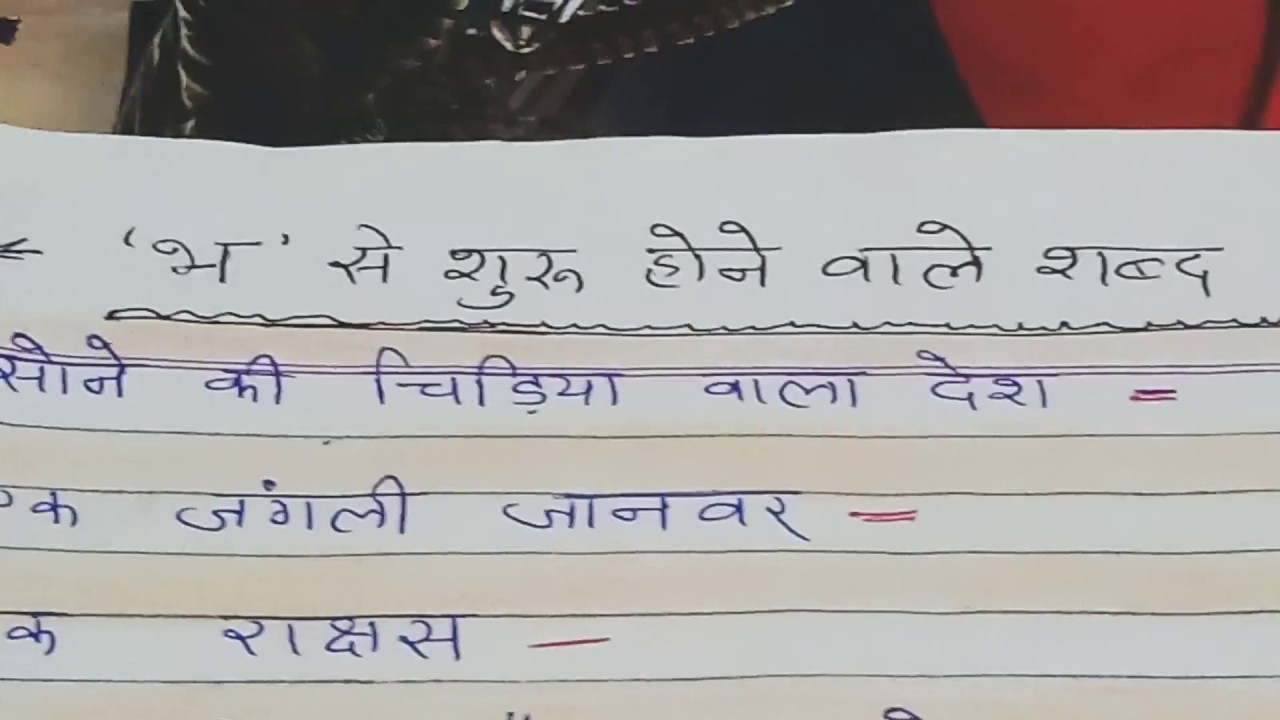 'भ' से शुरू होने वाले शब्द
सोने की चिड़िया वाला देश =
एक जंगली जानवर =
क राक्षस —